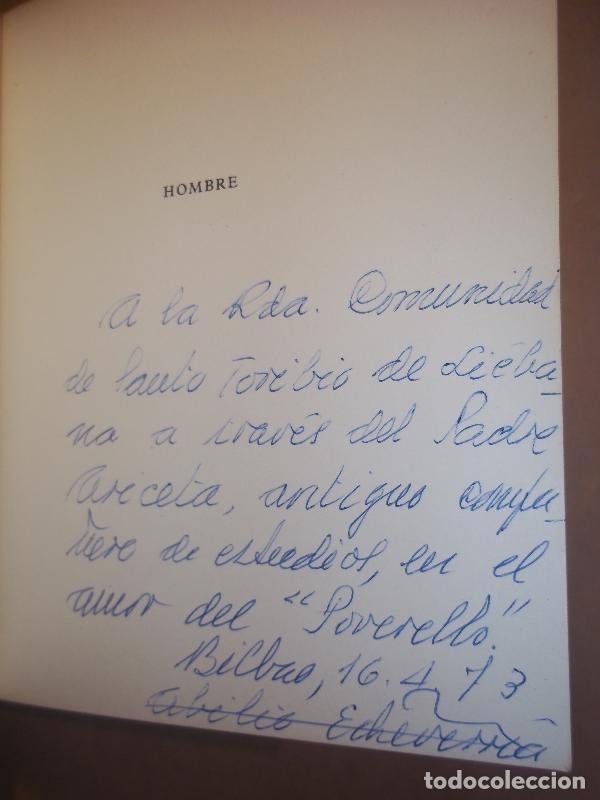 HOMBRE
A la Rda. Comunidad
de Santo Toribio de Lieba-
na a través del Padre
Ariceta, antiguo compa-
ñero de estudios, en el
amor del "Poverello."
Bilbao, 16.4.73
Abilio Echeverría
todocoleccion